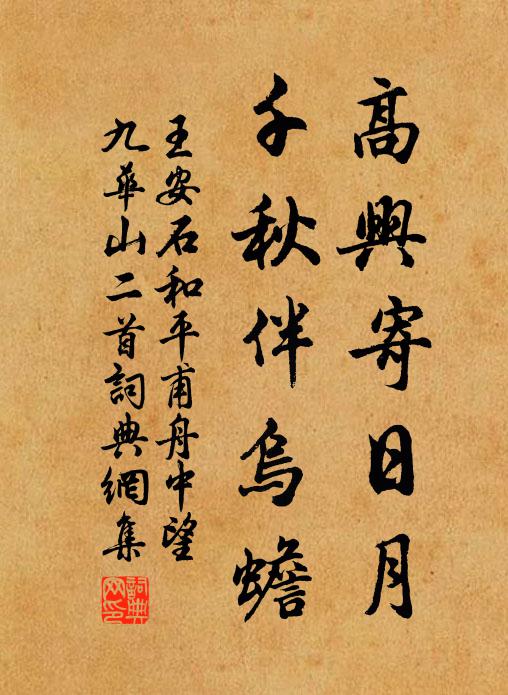 高興寄日月
千秋伴烏蟾
王安石和平甫舟中望
九華山二首詞典網集
詞典網印